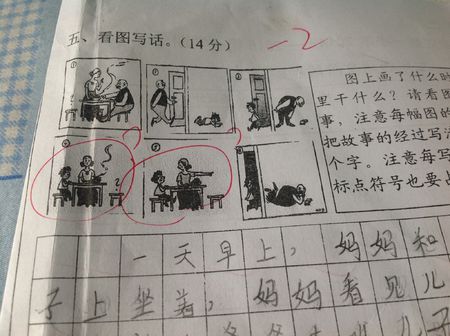 五、看图写话。(14分)
-2
①
②
③
④
⑤
图上画了什么时
里干什么？请看图
事，注意每幅图的
把故事的经过写清
个字。注意每写
标点符号也要占
一天早上，妈妈和
子上坐着，妈妈看见儿